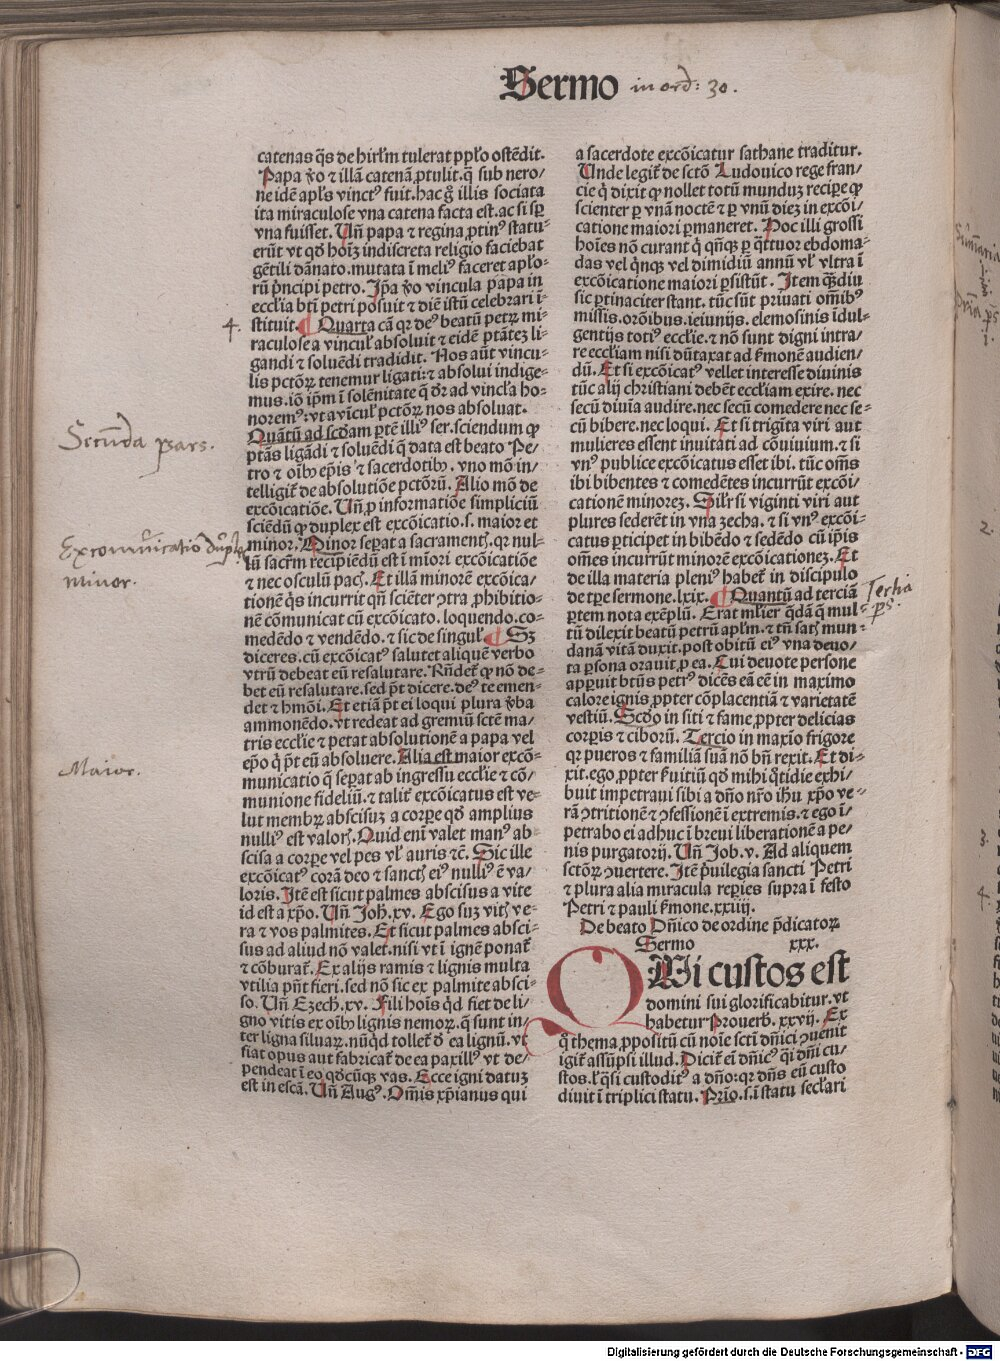 Sermo in ord: 30.
catenas q̃s de hirlm̃ tulerat ppl̃o ostẽdit.
Papa ṽo ⁊ illã catenã ꝓtulit. q̃ sub nero/
ne idẽ apl̃s vinctꝰ fuit. hac g̃ illis sociata
ita miraculose vna catena facta est. ac si sp̃
vna fuisset. Vñ papa ⁊ regina ꝓtinꝰ statu-
erũt vt qd̃ hoĩʒ indiscreta religio faciebat
gẽtili dãnato. mutata ĩ meliꝰ faceret apl̃o-
rũ p̃ncipi petro. Ip̃a ṽo vincula papa in
eccl̃ia bt̃i petri posuit ⁊ diẽ istũ celebrari ĩ-
4.
stituit. ¶ Quarta cã qr̃ deꝰ beatũ petrũ mi-
raculose a vincul̃ absoluit ⁊ eidẽ ptãtez li-
gandi ⁊ soluẽdi tradidit. Nos aũt vincu-
lis pctõꝝ tenemur ligati: ⁊ absolui indige-
mus. iõ ip̃m ĩ solẽnitate q̃ dr̃ ad vincl̃a ho-
noremꝰ: vt a vĩcul̃ pctõꝝ nos absoluat.
Secũda pars.
Quãtũ ad scd̃am ꝑtẽ illiꝰ ser. sciendum ꝙ
ptãs ligãdi ⁊ soluẽdi q̃ data est beato Pe-
tro ⁊ oĩbꝰ ep̃is ⁊ sacerdotibꝰ. vno mõ in/
telligit̃ de absolutiõe pctõrũ. Alio mõ de
excõicatiõe. Vñ ꝓ informatiõe simpliciũ
sciẽdũ ꝙ duplex est excõicatio. s. maior et
Excommunicatio duplex
minor. Minor seꝑat a sacramentꝭ. qr̃ nul-
Minor.
lũ sacrm̃ recipiẽdũ est ĩ miori excõicatiõe
⁊ nec osculũ pacꝭ. Et illã minorẽ excõica/
tionẽ q̃s incurrit qñ sciẽter ↄtra ꝓhibitio-
nẽ cõmunicat cũ excõicato. loquendo. co-
medẽdo ⁊ vendẽdo. ⁊ sic de singul̃. ¶ Sꝫ
diceres. cũ excõicatꝰ salutet aliquẽ verbo
vtrũ debeat eũ resalutare. Rñdet̃ ꝙ nõ de-
bet eũ resalutare. sed pt̃ dicere. deꝰ te emen-
det ⁊ hmõi. Et etiã pt̃ ei loqui plura ṽba
ammonẽdo. vt redeat ad gremiũ sctẽ ma/
tris eccl̃ie ⁊ petat absolutionẽ a papa vel
ep̃o q̃ pt̃ eũ absoluere. Alia est maior excõ-
Maior.
municatio q̃ seꝑat ab ingressu eccl̃ie ⁊ cõ/
munione fideliũ. ⁊ talit̃ excõicatus est ve-
lut membꝝ abscisuz a corꝑe qd̃ amplius
nulliꝰ est valorꝭ. Quid enĩ valet manꝰ ab
scisa a corꝑe vel pes vl̃ auris ⁊c̃. Sic ille
excõicatꝰ corã deo ⁊ sanctꝭ eiꝰ nulliꝰ ẽ va/
loris. Itẽ est sicut palmes abscisus a vite
id est a xp̃o. Vñ Joh̃. xv. Ego suꝫ vitꝭ ve-
ra ⁊ vos palmites. Et sicut palmes absci-
sus ad aliud nõ valet. nisi vt ĩ ignẽ ponat̃
⁊ cõburat̃. Ex alijs ramis ⁊ lignis multa
vtilia pñt fieri. sed nõ sic ex palmite absci-
so. Vñ Ezech̃. xv. Fili hoĩs qd̃ fiet de li-
gno vitis ex oĩbꝰ lignis nemoꝝ. q̃ sunt in/
ter ligna siluaꝝ. nũqd̃ tollet̃ d̃ ea lignũ. vt
fiat opus aut fabricat̃ de ea paxillꝰ vt de/
pendeat ĩ eo qd̃cũqꝫ vas. Ecce igni datuꝫ
est in escã. Vñ Augꝰ. Om̃is xp̃ianus qui
a sacerdote excõicatur sathane traditur.
Unde legit̃ de sctõ Ludouico rege fran/
cie q̃ dixit ꝙ nollet totũ munduꝫ reciꝑe ꝙ
scienter ꝑ vnã noctẽ ⁊ ꝑ vnũ dieꝫ in excõi/
catione maiori ꝑmaneret. Hoc illi grossi
hoĩes nõ curant q̃ qñqꝫ ꝑ q̃ttuor ebdoma-
das vel q̃nqꝫ vel dimidiũ annũ vl̃ vltra ĩ
excõicatione maiori ꝑsistũt. Item qꝫdiu
sic ꝑtinaciter stant. tũc sũt priuati om̃ibꝰ
missis. orõibus. ieiunijs. elemosinis ĩdul-
gentijs totiꝰ eccl̃ie. ⁊ nõ sunt digni intra/
re eccl̃iam nisi dũtaxat ad ẜmonẽ audien/
dũ. Et si excõicatꝰ vellet interesse diuinis
tũc alij christiani debẽt eccl̃iam exire. nec
secũ diuĩa audire. nec secũ comedere nec se-
cũ bibere. nec loqui. Et si trigĩta viri aut
mulieres essent inuitati ad cõuiuium. ⁊ si
vnꝰ publice excõicatus esset ibi. tũc om̃s
ibi bibentes ⁊ comedẽtes incurrũt excõi/
cationẽ minoreꝫ. Silr̃ si viginti viri aut
plures sederẽt in vna zecha. ⁊ si vnꝰ excõi-
catus ꝑticipet in bibẽdo ⁊ sedẽdo cũ ip̃is
om̃es incurrũt minorẽ excõicationeꝫ. Et
de illa materia pleniꝰ habet̃ in discipulo
de tꝑe sermone. lxix. ¶ Quantũ ad terciã
Tertia ps.
ꝑtem nota exẽplũ. Erat ml̃ier q̃dã q̃ mul-
tũ dilexit beatũ petrũ apl̃m. ⁊ tñ satꝭ mun-
danã vitã duxit. post obitũ eiꝰ vna deuo/
ta ꝑsona orauit ꝓ ea. Cui deuote persone
apꝑuit bt̃us petrꝰ dicẽs eã eẽ in maximo
calore ignis ꝓpter cõplacentiã ⁊ varietatẽ
vestiũ. Scd̃o in siti ⁊ fame ꝓpter delicias
corꝑis ⁊ ciborũ. Tercio in maxĩo frigore
qr̃ pueros ⁊ familiã suã nõ bñ rexit. Et di-
xit. ego ꝓpter ẜuitiũ qd̃ mihi q̃tidie exhi/
buit impetraui sibi a dño nr̃o ih̃u xp̃o ve-
rã ↄtritionẽ ⁊ ↄfessionẽ ĩ extremis. ⁊ ego ĩ/
petrabo ei adhuc ĩ breui liberationẽ a pe/
nis purgatorij. Vñ Job. v. Ad aliquem
sctõꝝ ↄuertere. Itẽ p̃uilegia sancti Petri
⁊ plura alia miracula reꝑies supra ĩ festo
Petri ⁊ pauli ẜmone. xxiiij.
De beato Dñico de ordine p̃dicatoꝝ
Sermo xxx.
QWi custos est
domini sui glorificabitur. vt
habetur Prouerb̃. xxvij. Ex
q̃ thema ꝓpositũ cũ noĩe sctĩ dñici ↄuenit
igit̃ assũpsi illud. Dicit̃ eĩ dñicꝰ q̃i dñi cu/
stos. l̃ q̃si custoditꝰ a dño: qr̃ dñs eũ custo
diuit ĩ triplici statu. Prĩo. s. ĩ statu secl̃ari
2.
3.
4.
Digitalisierung gefördert durch die Deutsche Forschungsgemeinschaft - DFG